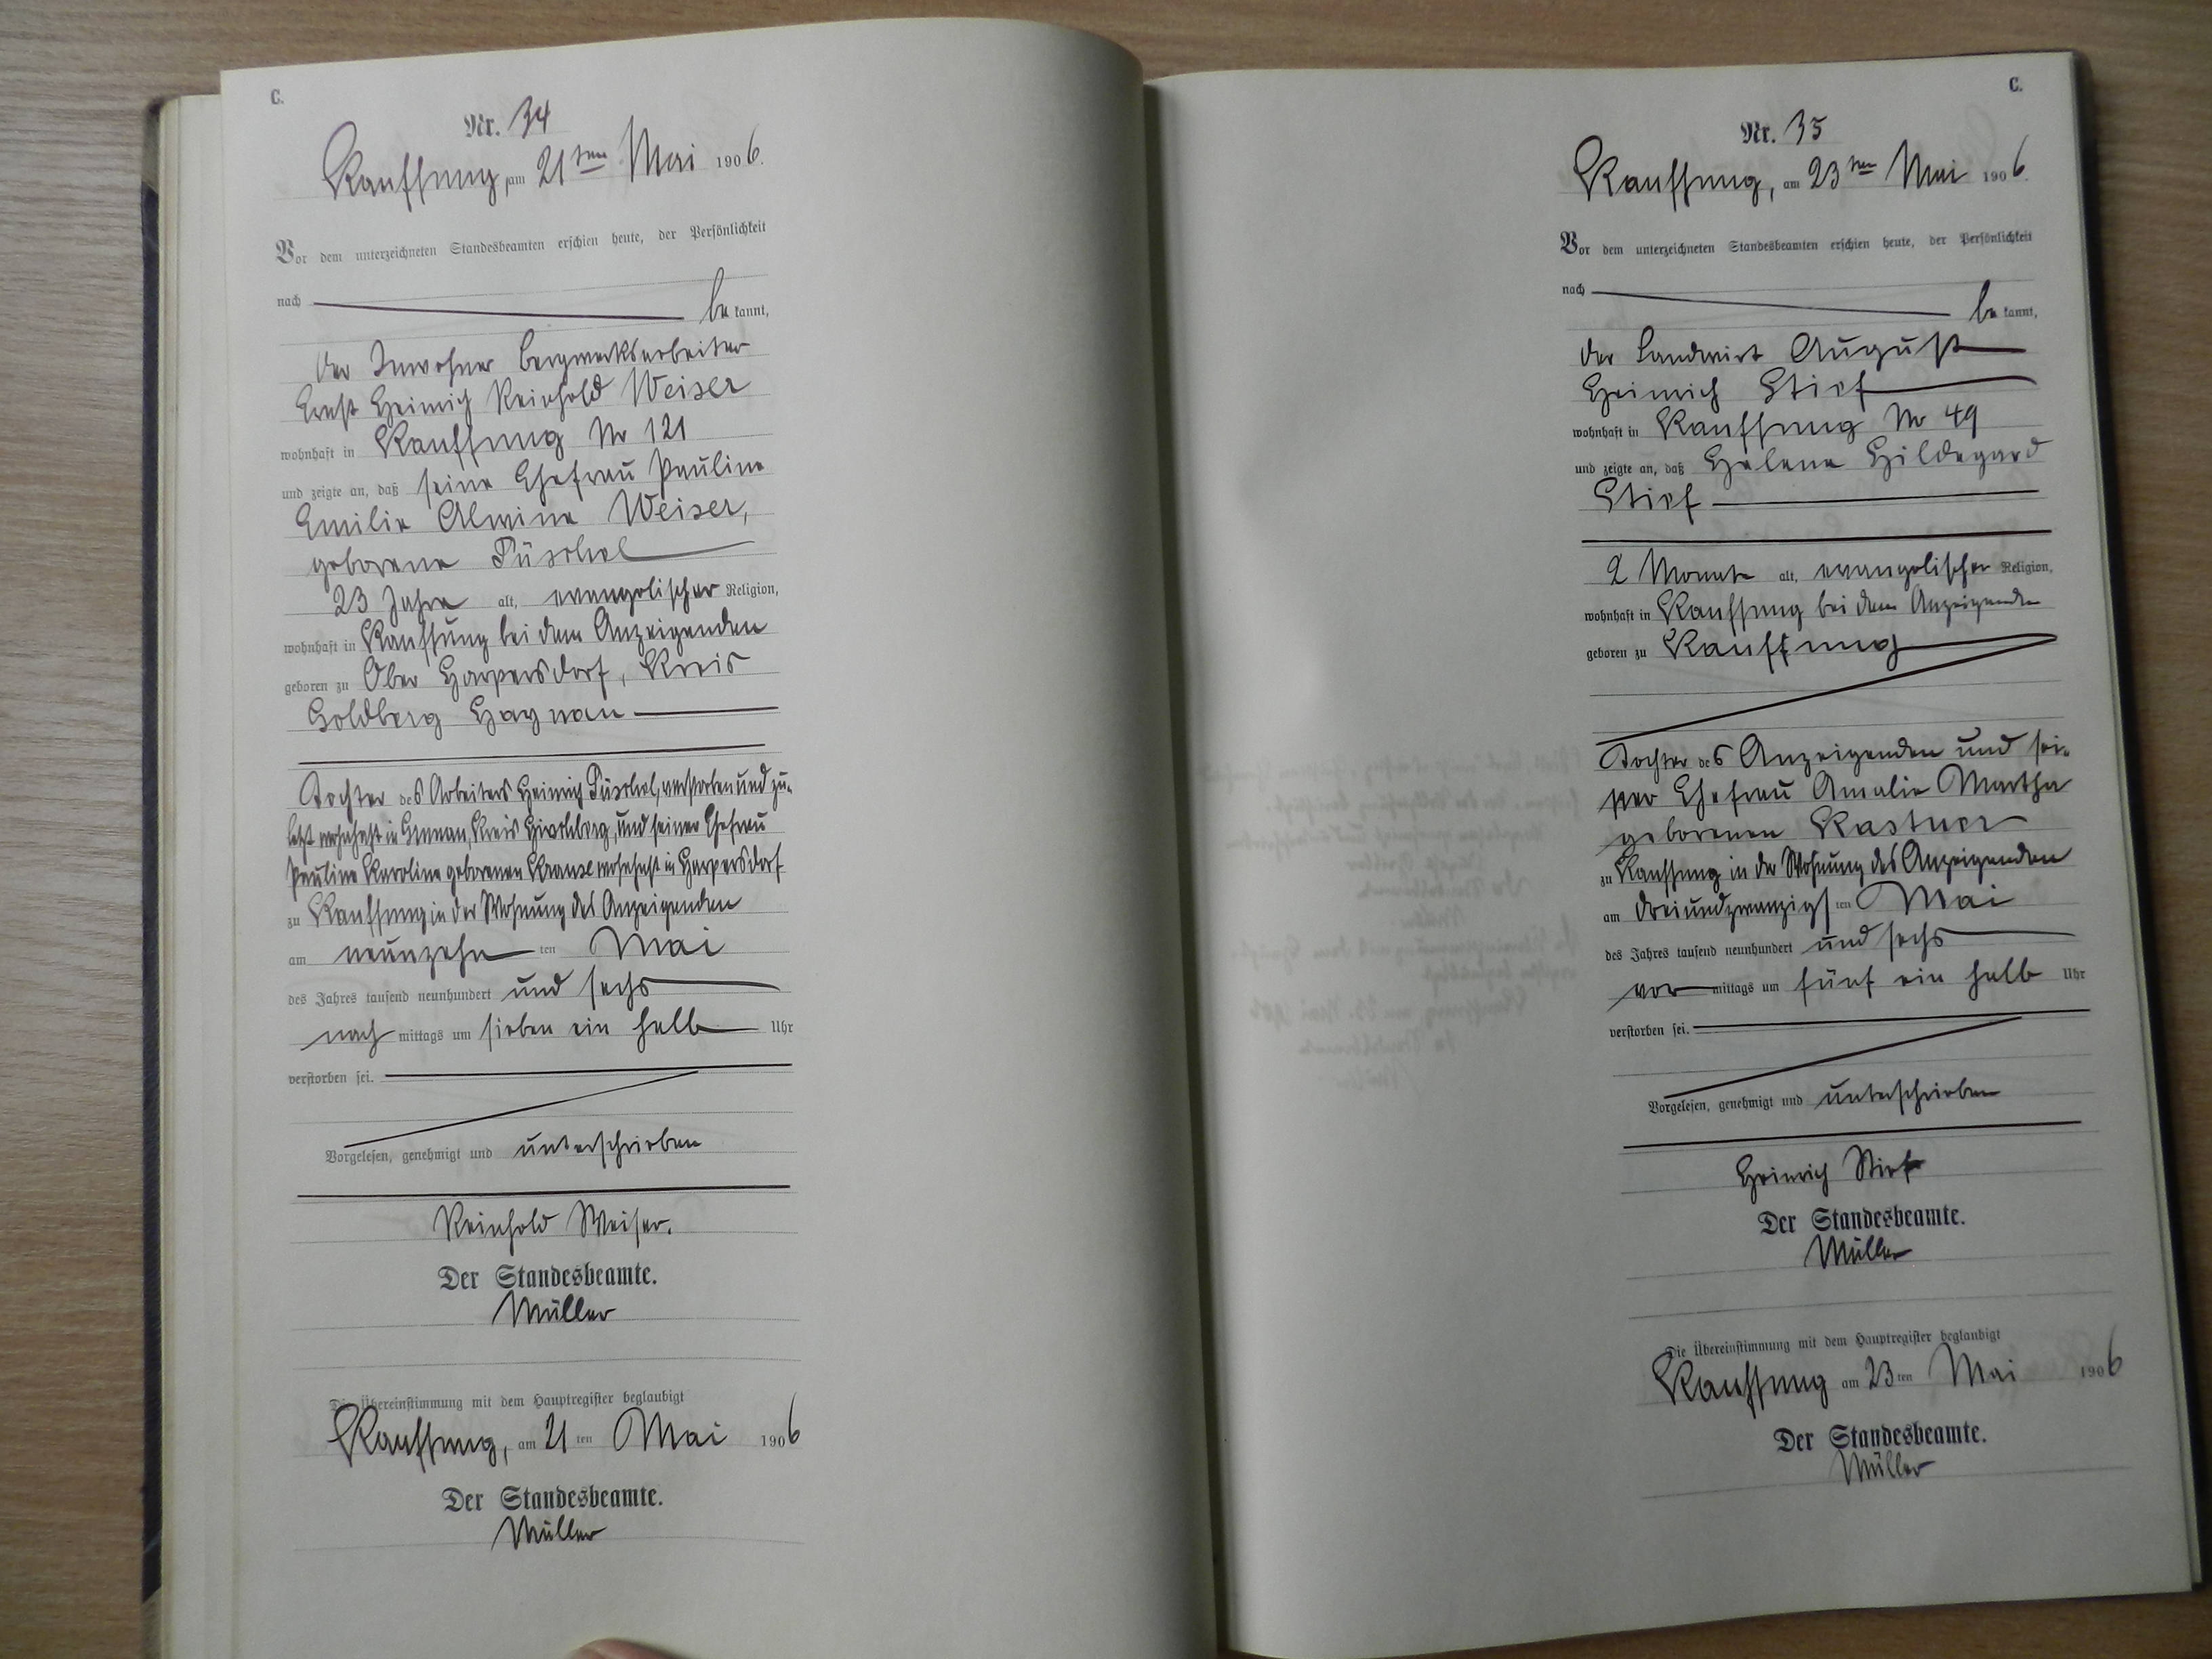 C.
Nr. 34
Kauffung, am 21ten Mai 1906.
Vor dem unterzeichneten Standesbeamten erschien heute, der Persönlichkeit
nach be kannt,
der Inwohner Bergwerksarbeiter
Ernst Heinrich Reinhold Weiser
wohnhaft in Kauffung Nr 121
und zeigte an, daß seine Ehefrau Pauline
Emilie Alwine Weiser,
geborene Püschel
23 Jahre alt, evangelischer Religion,
wohnhaft in Kauffung bei dem Anzeigenden
geboren zu Ober Harpersdorf, Kreis
Goldberg Haynau
Tochter des Arbeiters Heinrich Püschel, verstorben und zu-
letzt wohnhaft in Kreis Hirschberg, und seiner Ehefrau
Pauline Karoline geborenen Krause wohnhaft in Harpersdorf
zu Kauffung in der Wohnung des Anzeigenden
am neunzehn ten Mai
des Jahres tausend neunhundert und sechs
nach mittags um sieben ein halb Uhr
verstorben sei.
Vorgelesen, genehmigt und unterschrieben
Reinhold Weiser.
Der Standesbeamte.
Müller
Die Übereinstimmung mit dem Hauptregister beglaubigt
Kauffung, am 21 ten Mai 1906
Der Standesbeamte.
Müller
C.
Nr. 35
Kauffung, am 23ten Mai 1906.
Vor dem unterzeichneten Standesbeamten erschien heute, der Persönlichkeit
nach be kannt,
der Landwirt August
Heinrich Stief
wohnhaft in Kauffung Nr 49
und zeigte an, daß Helene Hildegard
Stief
2 Monate alt, evangelischer Religion,
wohnhaft in Kauffung bei dem Anzeigenden
geboren zu Kauffung
Tochter des Anzeigenden und sei-
ner Ehefrau Amalie Martha
geborenen Kastner
zu Kauffung in der Wohnung des Anzeigenden
am dreiundzwanzigs ten Mai
des Jahres tausend neunhundert und sechs
vor mittags um fünf ein halb Uhr
verstorben sei.
Vorgelesen, genehmigt und unterschrieben
Heinrich Stief
Der Standesbeamte.
Müller
Die Übereinstimmung mit dem Hauptregister beglaubigt
Kauffung am 23 ten Mai 1906
Der Standesbeamte.
Müller